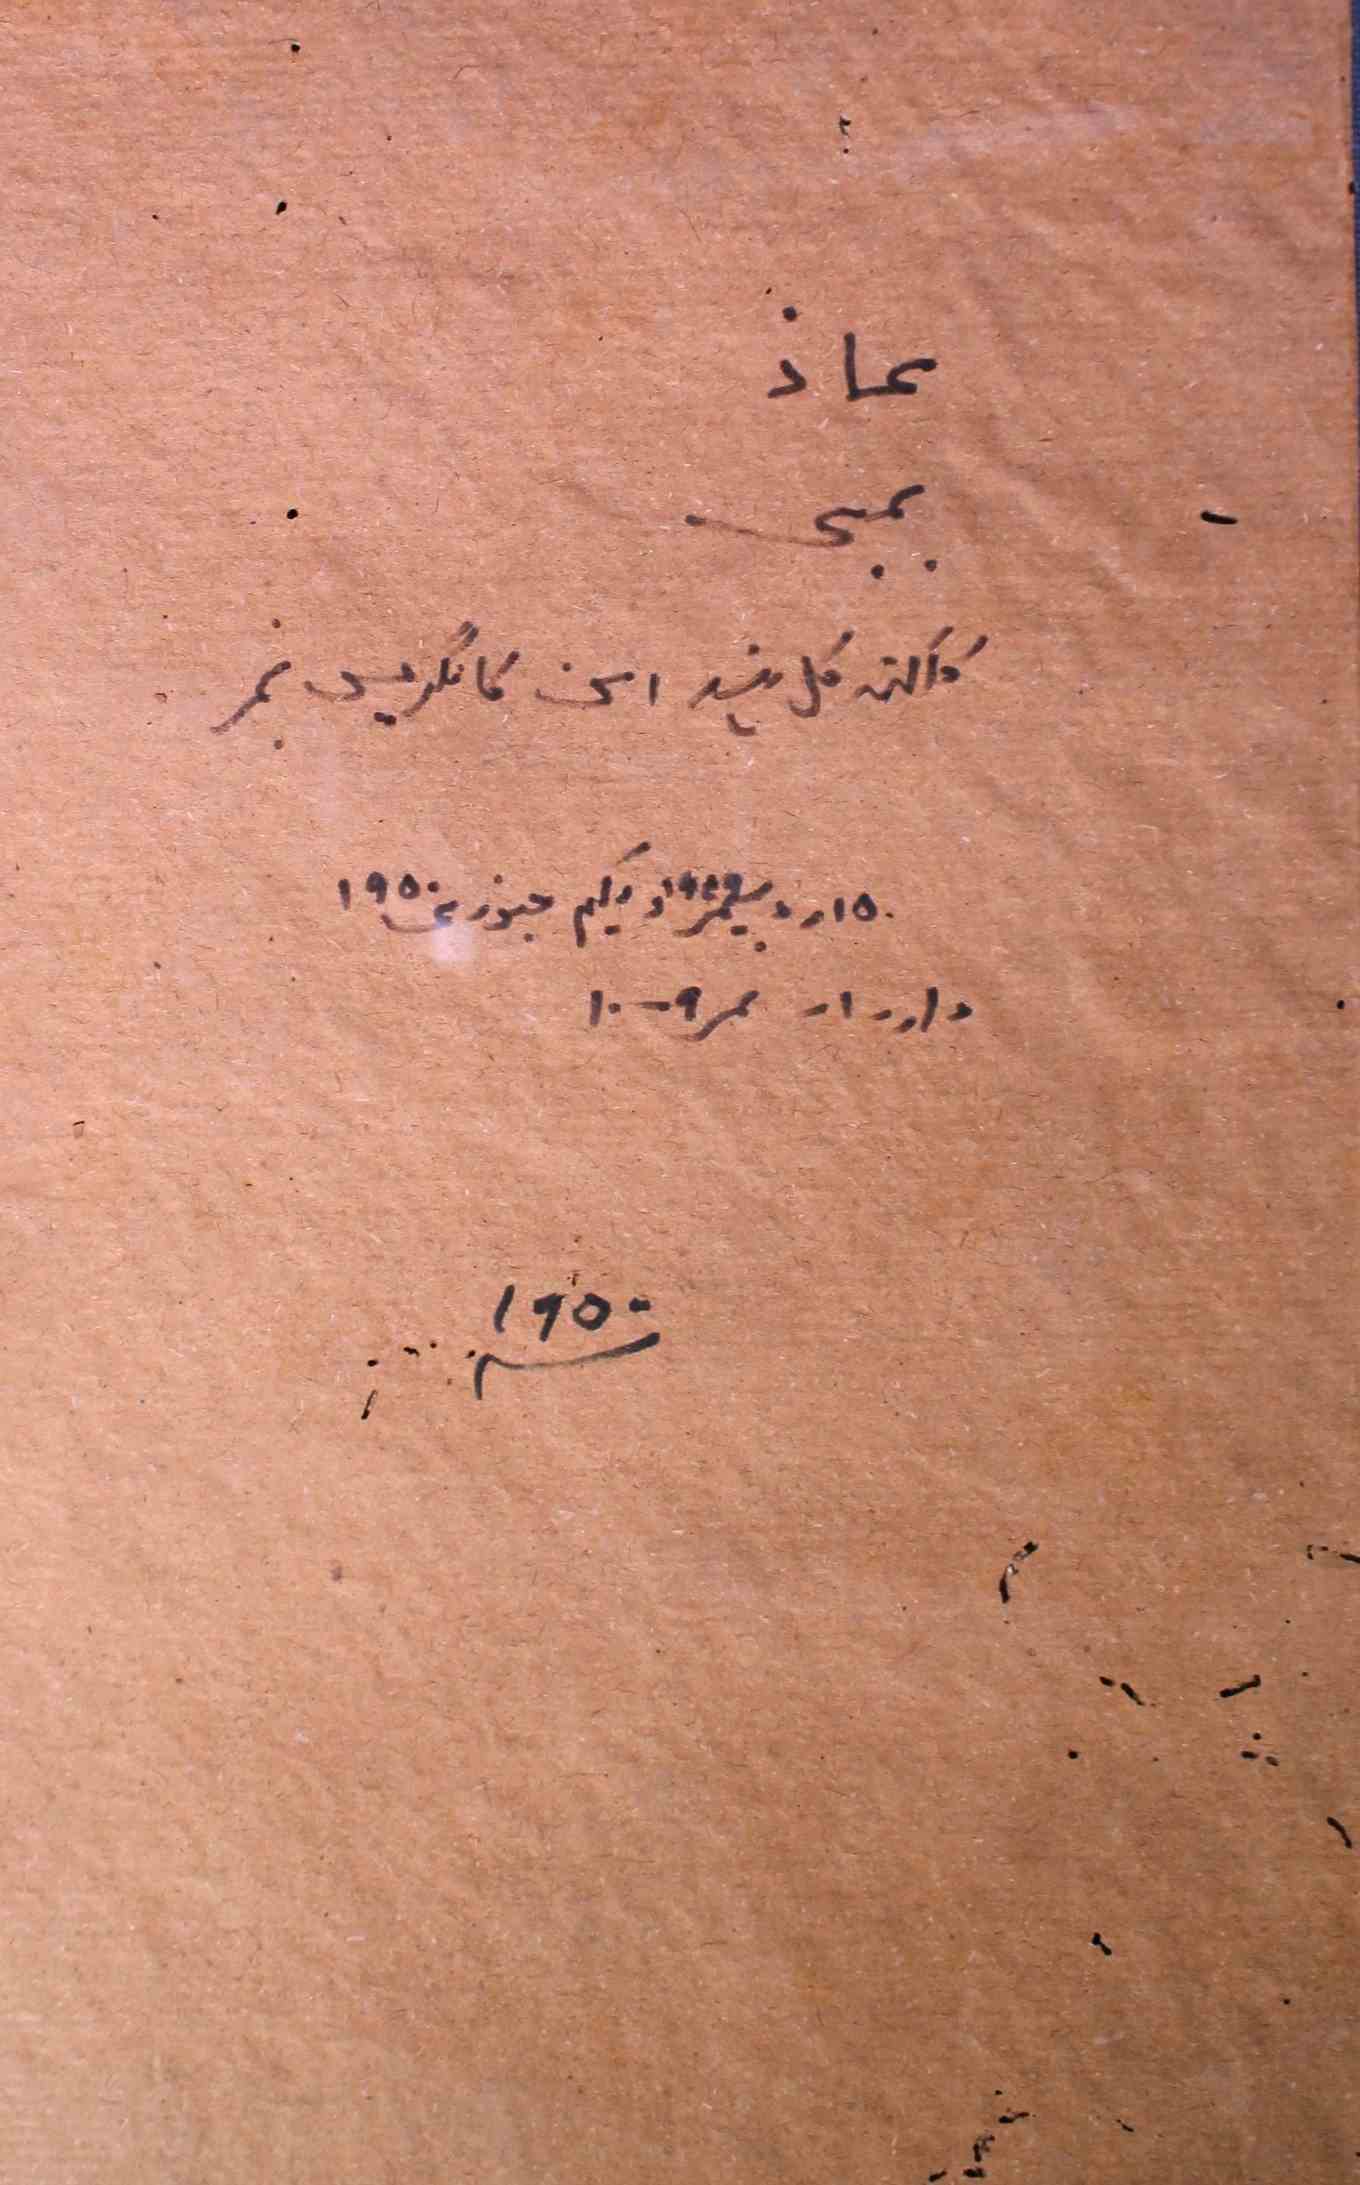 محاذ
بمبئی
کل ہند امن کانگریس نمبر
۱۵ر دسمبر ۱۹۴۹ و یکم جنوری ۱۹۵۰
۹-۱۰
۱۹۵۰